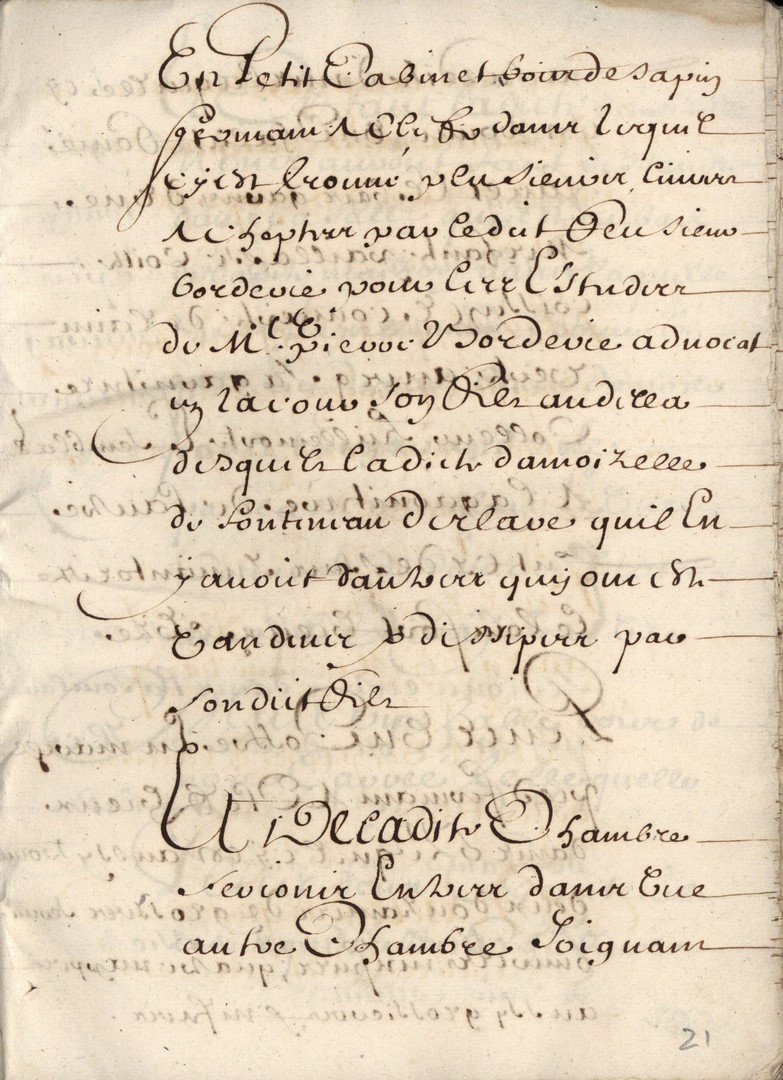 Un Petit Cabinet boix de sapin
fermant a Clef dans lequel
c'est trouvé plusieurs livres
Acheptes par ledit feu sieur
bordevie pour lire Estudier
de Me Pierre Bordevie advocat
en la cour son fils au dela
desquels ladicte damoizelle
de Pontineau declare quil En
y avoit dautres quy ont esté
Vandeues & dissiperes par
sondit fils
Et De Ladite Chambre
serions Entres dans Une
autre Chambre Joignant
21